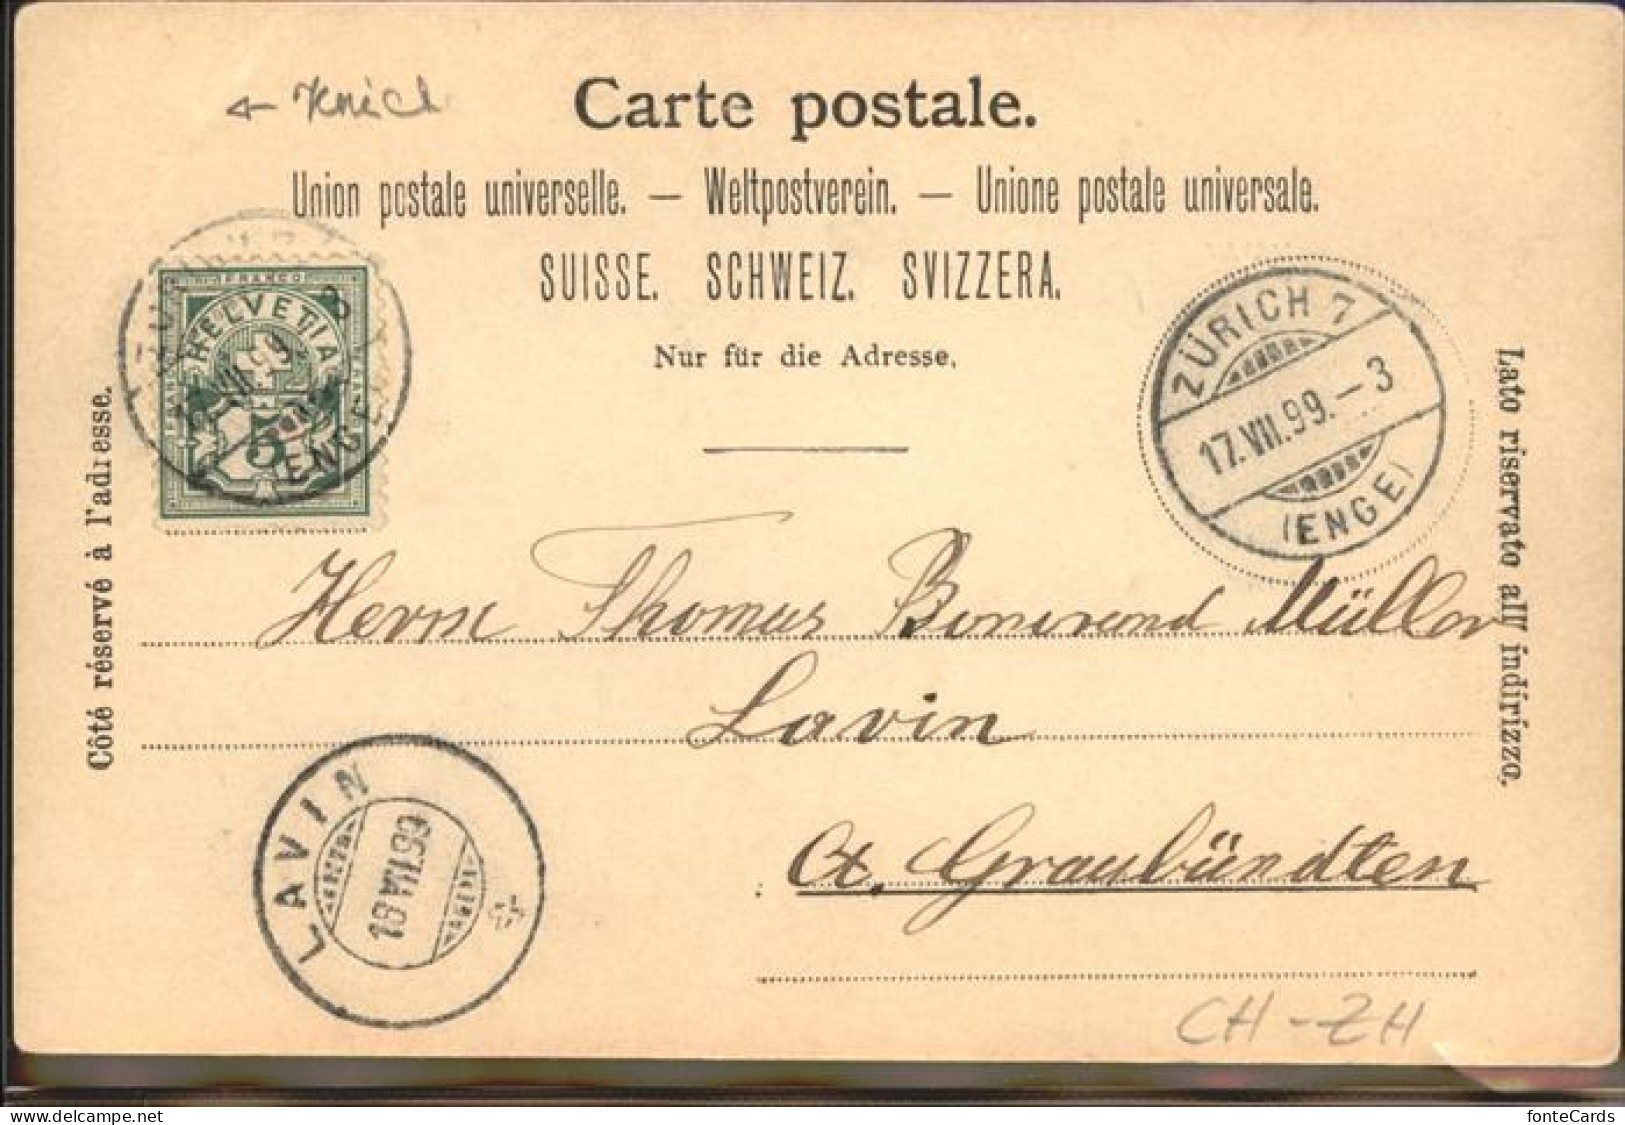 Carte postale.
Union postale universelle. — Weltpostverein. — Unione postale universale.
SUISSE. SCHWEIZ. SVIZZERA.
Nur für die Adresse.
Côté réservé à l'adresse.
Lato riservato all' indirizzo.
FRANCO
HELVETIA
5
(ENGE)
ZÜRICH 7
17.VII.99.-3
(ENGE)
Herrn Thomas Bonorand Müller
Lavin
Ct. Graubündten
LAVIN
18.VII.99
CH-ZH
fonteCards